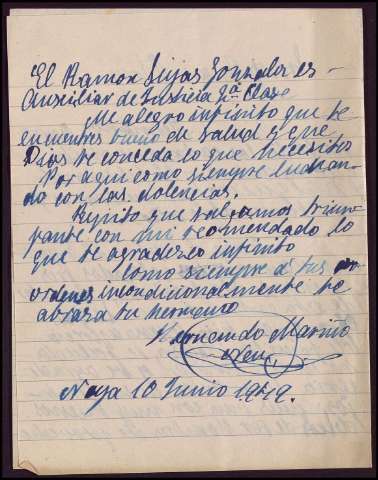 El Ramon Lijas Gonzalez es -
Auxiliar de Justicia 2ª Clase
Me alegro infinito que te
encuentres bueno de salud y que
Dios te conceda lo que necesito
Por aqui como siempre luchan
do con las dolencias.
Repito que salgamos triun
fante con mi recomendado lo
que te agradezco infinito
como siempre á tus
ordenes incondicionalmente te
abraza tu hermano
Hernando Marino
Noya 10 Junio 1949.